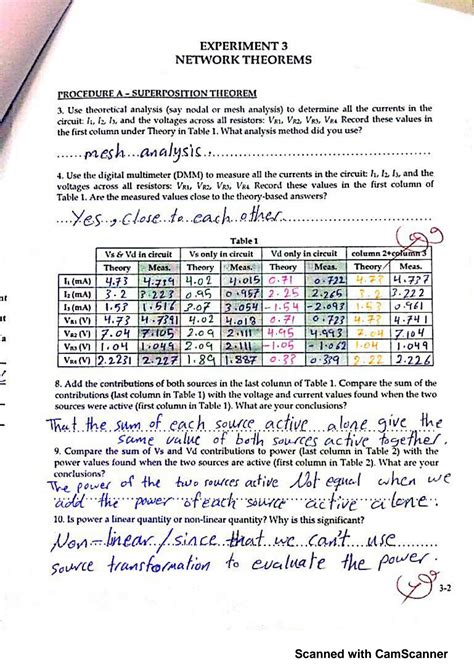 EXPERIMENT 3
NETWORK THEOREMS
PROCEDURE A – SUPERPOSITION THEOREM
3. Use theoretical analysis (say nodal or mesh analysis) to determine all the currents in the
circuit: I₁, I₂, I₃, and the voltages across all resistors: VR1, VR2, VR3, VR4 Record these values in
the first column under Theory in Table 1. What analysis method did you use?
mesh analysis
4. Use the digital multimeter (DMM) to measure all the currents in the circuit: I₁, I₂, I₃, and the
voltages across all resistors: VR1, VR2, VR3, VR4 Record these values in the first column of
Table 1. Are the measured values close to the theory-based answers?
Yes, close to each other
Table 1
Vs & Vd in circuit Vs only in circuit Vd only in circuit column 2+column 3
Theory Meas. Theory Meas. Theory Meas. Theory Meas.
I₁ (mA) 4.73 4.739 4.02 4.015 0.71 0.722 4.73 4.737
I₂ (mA) 3.2 3.223 0.95 0.957 2.25 2.265 3.2 3.222
I₃ (mA) 1.53 1.516 3.054 -1.54 -2.093 1.53 0.961
VR1 (V) 4.73 4.734 4.02 4.018 0.71 0.723 4.73 4.741
VR2 (V) 7.04 7.105 2.09 2.111 4.95 4.993 7.04 7.104
VR3 (V) 1.04 1.049 2.09 2.111 -1.05 -1.062 1.04 1.049
VR4 (V) 2.2231 2.227 1.89 1.887 0.33 0.339 2.22 2.226
8. Add the contributions of both sources in the last column of Table 1. Compare the sum of the
contributions (last column in Table 1) with the voltage and current values found when the two
sources were active (first column in Table 1). What are your conclusions?
That the sum of each source active alone give the
same value of both sources active together.
9. Compare the sum of Vs and Vd contributions to power (last column in Table 2) with the
power values found when the two sources are active (first column in Table 2). What are your
conclusions?
The power of the two sources active Not equal when we
add the power of each source active alone.
10. Is power a linear quantity or non-linear quantity? Why is this significant?
Non-linear / since that we can't use
source transformation to evaluate the power.
3-2
Scanned with CamScanner